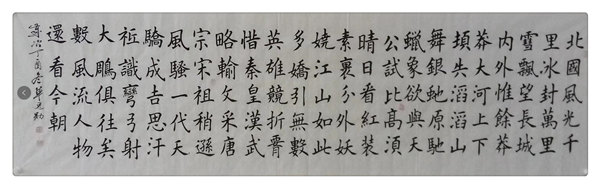 北國風光千
里冰封萬里
雪飄望長城
內外惟餘莽
莽大河上下
頓失滔滔山
舞銀虵原馳
蠟象欲與天
公試比高須
晴日看紅裝
素裹分外妖
嬈江山如此
多嬌引無數
英雄競折腰
惜秦皇漢武
略輸文采唐
宗宋祖稍遜
風騷一代天
驕成吉思汗
祗識彎弓射
大鵰俱往矣
數風流人物
還看今朝
丁酉冬